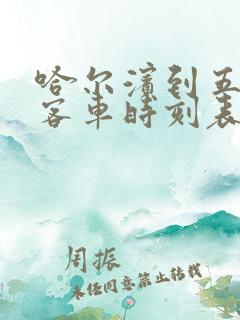 哈尔滨到五
客车时刻表
周振
未经同意禁止转载